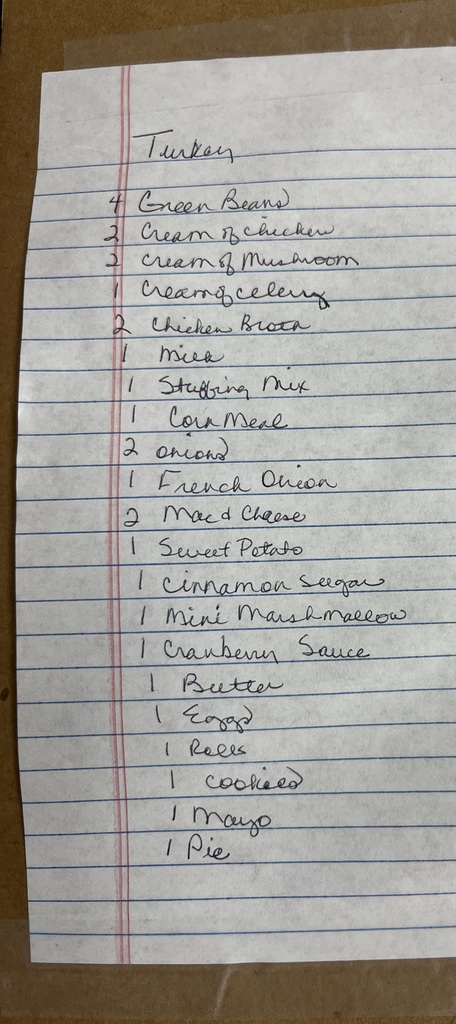 Turkey
4 Green Beans
2 Cream of chicken
2 Cream of Mushroom
1 Cream of celery
2 Chicken Broth
1 Milk
1 Stuffing Mix
1 Corn Meal
2 onions
1 French Onion
2 Mac & Cheese
1 Sweet Potato
1 Cinnamon Sugar
1 Mini Marshmallow
1 Cranberry Sauce
1 Butter
1 Eggs
1 Rolls
1 Cookies
1 Mayo
1 Pie